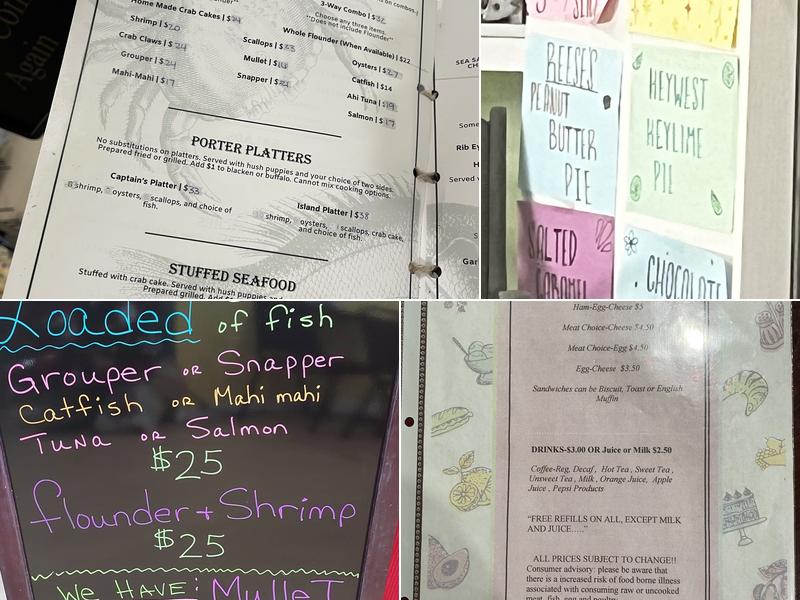 Home Made Crab Cakes | $24
Shrimp | $20
Crab Claws | $24
Grouper | $24
Mahi-Mahi | $17
Scallops |
Mullet |
Snapper |
3-Way Combo |
Choose any three items.
**Does not include Flounder**
Whole Flounder (When Available) | $22
Oysters |
Catfish | $14
Ahi Tuna | $19
Salmon | $17
PORTER PLATTERS
No substitutions on platters. Served with hush puppies and your choice of two sides.
Prepared fried or grilled. Add $1 to blacken or buffalo. Cannot mix cooking options.
Captain's Platter | $33
shrimp, oysters, scallops, and choice of
fish.
Island Platter | $38
shrimp, oysters, scallops, crab cake,
and choice of fish.
STUFFED SEAFOOD
Stuffed with crab cake. Served with hush puppies and
Prepared grilled
Some
Rib Ey
Served
Gar
REESE'S
PEANUT
BUTTER
PIE
KEYWEST
KEYLIME
PIE
SALTED
CARAMEL
CHOCOLATE
Loaded of fish
Grouper OR Snapper
Catfish OR Mahi mahi
Tuna OR Salmon
$25
flounder + Shrimp
$25
We HAVE: MulleT
Ham-Egg-Cheese $5
Meat Choice-Cheese $4.50
Meat Choice-Egg $4.50
Egg-Cheese $3.50
Sandwiches can be Biscuit, Toast or English
Muffin
DRINKS-$3.00 OR Juice or Milk $2.50
Coffee-Reg, Decaf, Hot Tea, Sweet Tea,
Unsweet Tea, Milk, Orange Juice, Apple
Juice, Pepsi Products
"FREE REFILLS ON ALL, EXCEPT MILK
AND JUICE....."
ALL PRICES SUBJECT TO CHANGE!!
Consumer advisory: please be aware that
there is a increased risk of food borne illness
associated with consuming raw or uncooked
meat, fish, egg and poultry